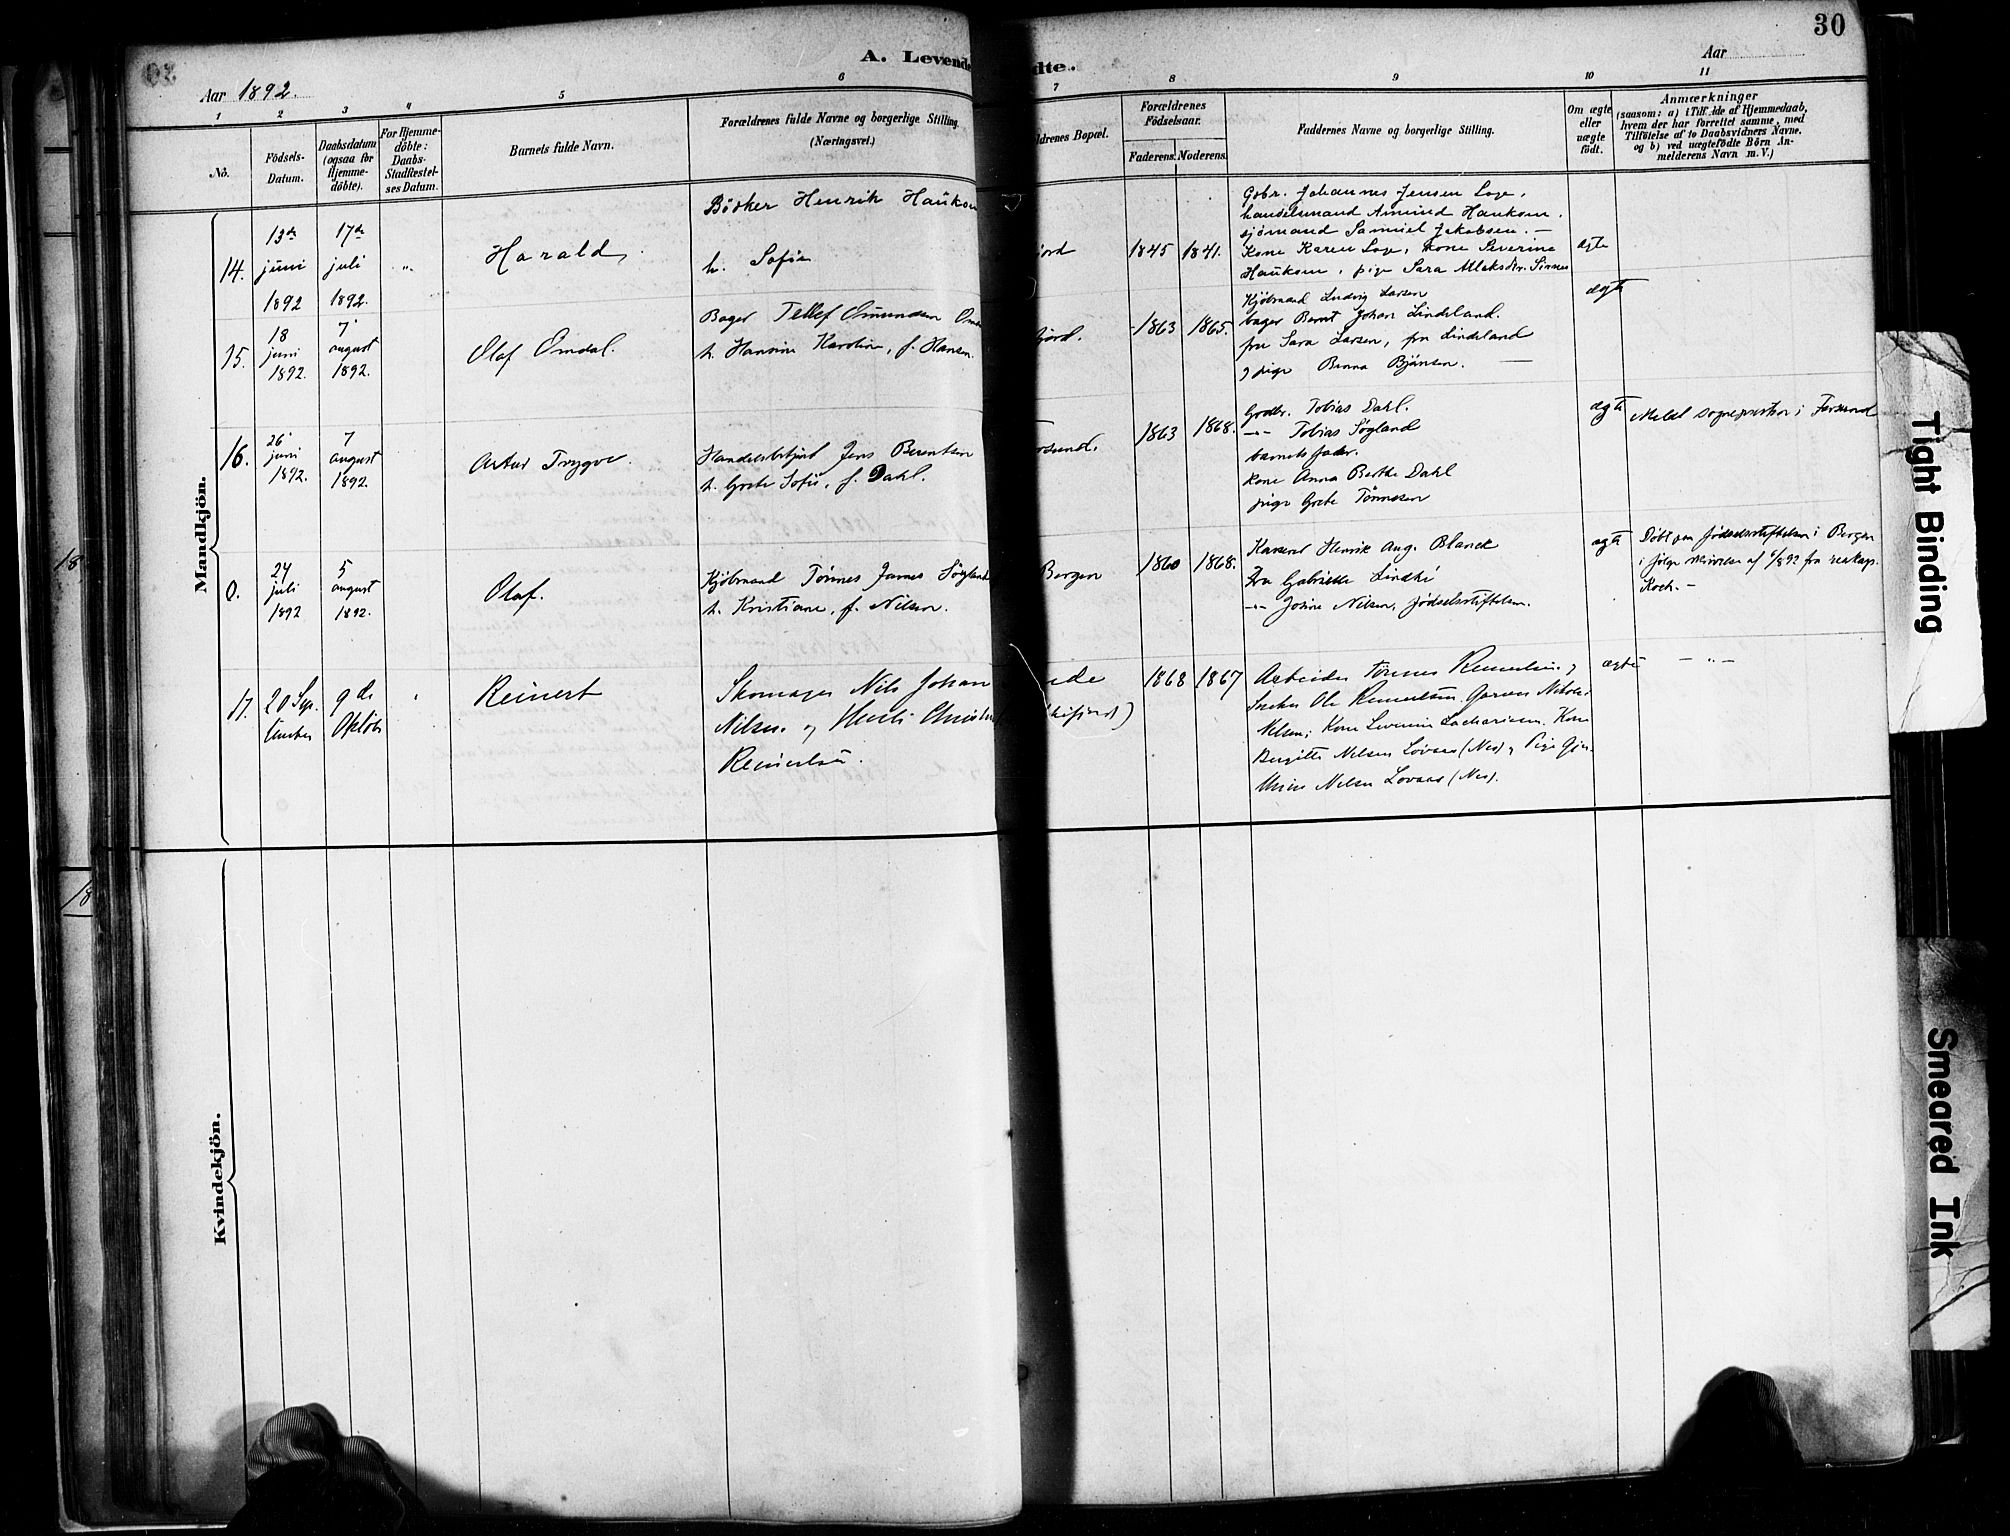 30
A. Levende
dte.
Aar 1892.
Aar
1 2 3 4 5 6 7 8 9 10 11
No.
Födsels-Datum.
Daabsdatum (ogsaa for Hjemme-döbte).
For Hjemme-döbte: Daabs-Stadfæstel-ses Datum.
Barnets fulde Navn.
Forældrenes fulde Navne og borgerlige Stilling. (Næringsvei.)
ldrenes Bopæl.
Forældrenes Födselsaar.
Faderens. Moderens.
Faddernes Navne og borgerlige Stilling.
Om ægte eller uægte födt.
Anmærkninger
(saasom: a) i Tilfælde af Hjemmedaab, hvem der har forrettet samme, med Tilföielse af to Daabsvidners Navne. og b) ved uægtefödte Börn An-melderens Navn m. V.)
Mandkjön.
14.
13de juni 1892
17de juli 1892.
"
Harald
Bödker Henrik Haukom
h. Sofie
jord
1845 1841.
Gbr. Johannes Jensen Loge,
handelsmand Amund Haukom.
sjömand Samuel Jakobsen. —
Kone Karen Loge, kone Severine
Haukom, pige Sara Alleksdtr. Sirnes
ægte
15.
18 juni 1892.
7 august 1892.
Olaf Omdal.
Bager Tellef Omundsen
h. Hansine Karoline, f. Hansen.
fjord.
1863 1865.
Kjöbmand Ludvig Larsen
bager Bernt Johan Lindeland.
fru Sara Larsen, fru Lindeland
pige Benna Bjänsen. —
ægte
16.
26 juni 1892.
7 august 1892.
Artur Trygve.
Handelsbetjent Jens Berentsen
h. Grete Sofie, f. Dahl.
rsund.
1863 1868.
Tobias Dahl.
-"- Tobias Søgland
barnets fader.
kone Anna Berthe Dahl
pige Grete Tönnesen
ægte
Meldt sogneprsten i Farsund
0.
24 juli 1892
5 august 1892.
Olaf.
Kjöbmand Tönnes Jonas Sögland
h. Kristiane, f. Nilsen.
Bergen
1860 1868.
Henrik Aug. Blanck
Fru Gabrielle Lindtö
-"- Josine Nilsen, födselsstiftelsen.
ægte
Döbt paa födselsstiftelsen i Bergen
i fölge skrivelse af 6/8 92 fra reskap.
Koch. —
17.
20 September
9de Oktober
Reinert
Skomager Nils Johan
Nilsen og
Reinertsen.
ide
1868 1867
Arbeider Tönnes Reinertsen,
Snekker Ole Reinertsen, Garver Nikolai
Nelsen; Kone Severine Zachariasen. Kone
Birgitte Nilsen Lovaas (Nes), Pige
Nilsen Lovaas (Nes).
ægte
— " —
Kvindekjön.
18
18
Tight Binding
Smeared Ink